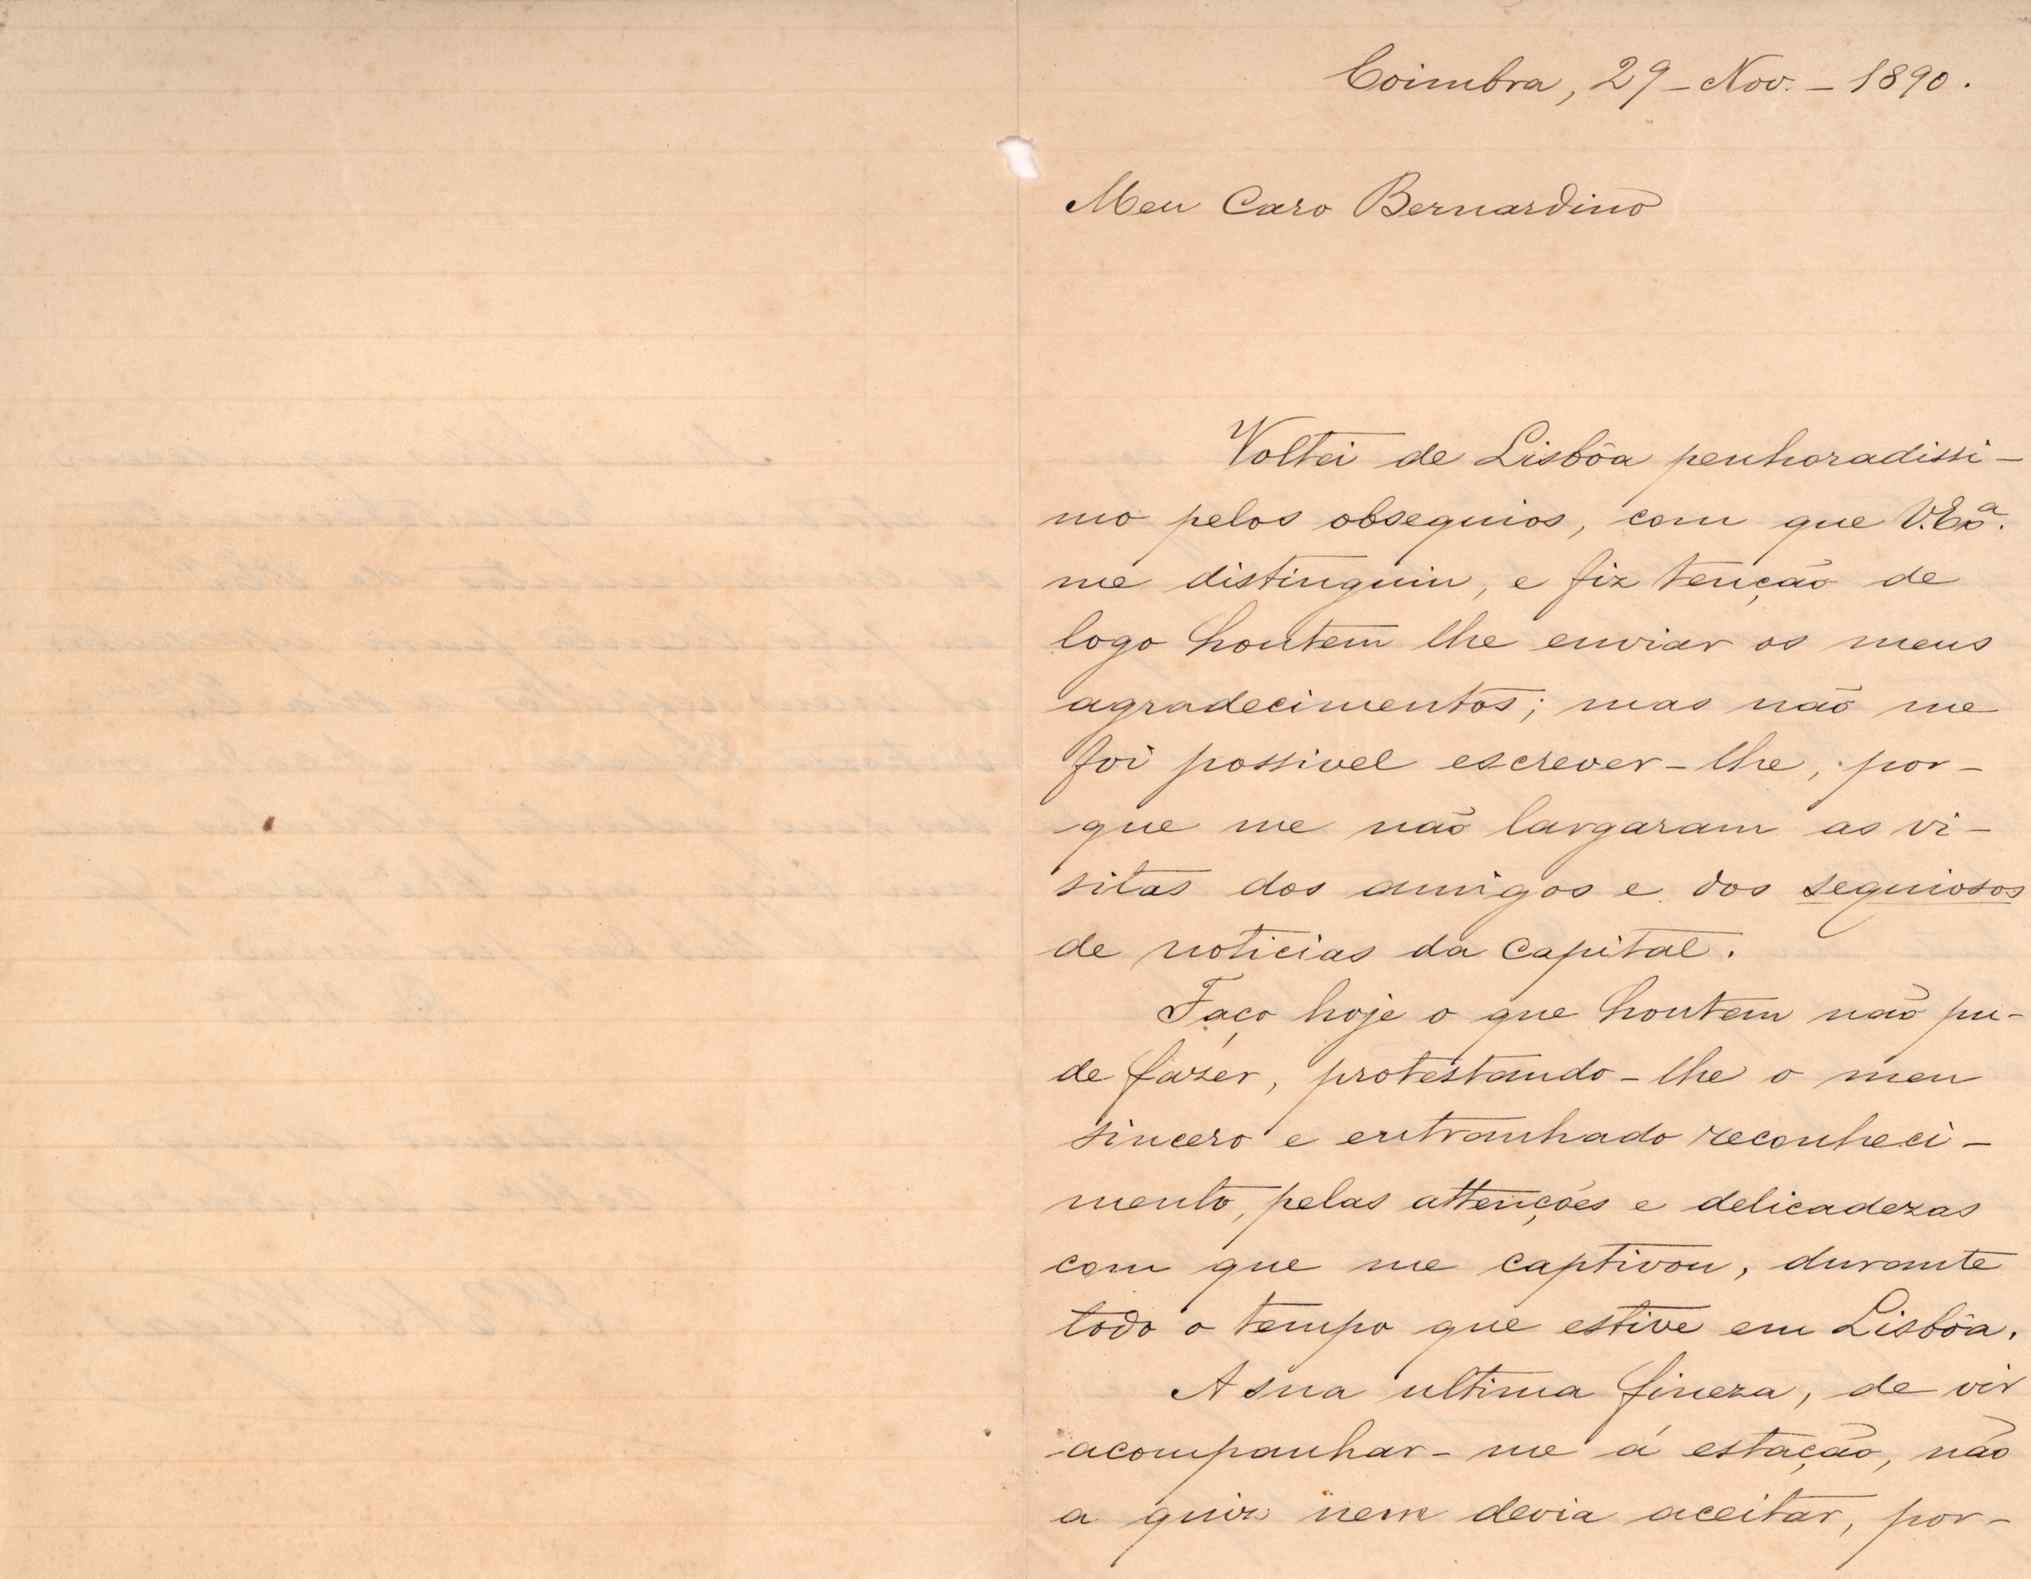 Coimbra, 29 - Nov. - 1890.
Meu Caro Bernardino
Voltei de Lisbôa penhoradissi-
mo pelos obsequios, com que V. Exª.
me distinguiu, e fiz tenção de
logo hontem lhe enviar os meus
agradecimentos; mas não me
foi possivel escrever-lhe, por-
que me não largaram as vi-
sitas dos amigos e dos sequiosos
de noticias da Capital.
Faço hoje o que hontem não pu-
de fazer, protestando-lhe o meu
sincero e entranhado reconheci-
mento, pelas attenções e delicadezas
com que me captivou, durante
todo o tempo que estive em Lisbôa.
A sua ultima fineza, de vir
acompanhar-me á estação, não
a quiz nem devia aceitar, por-